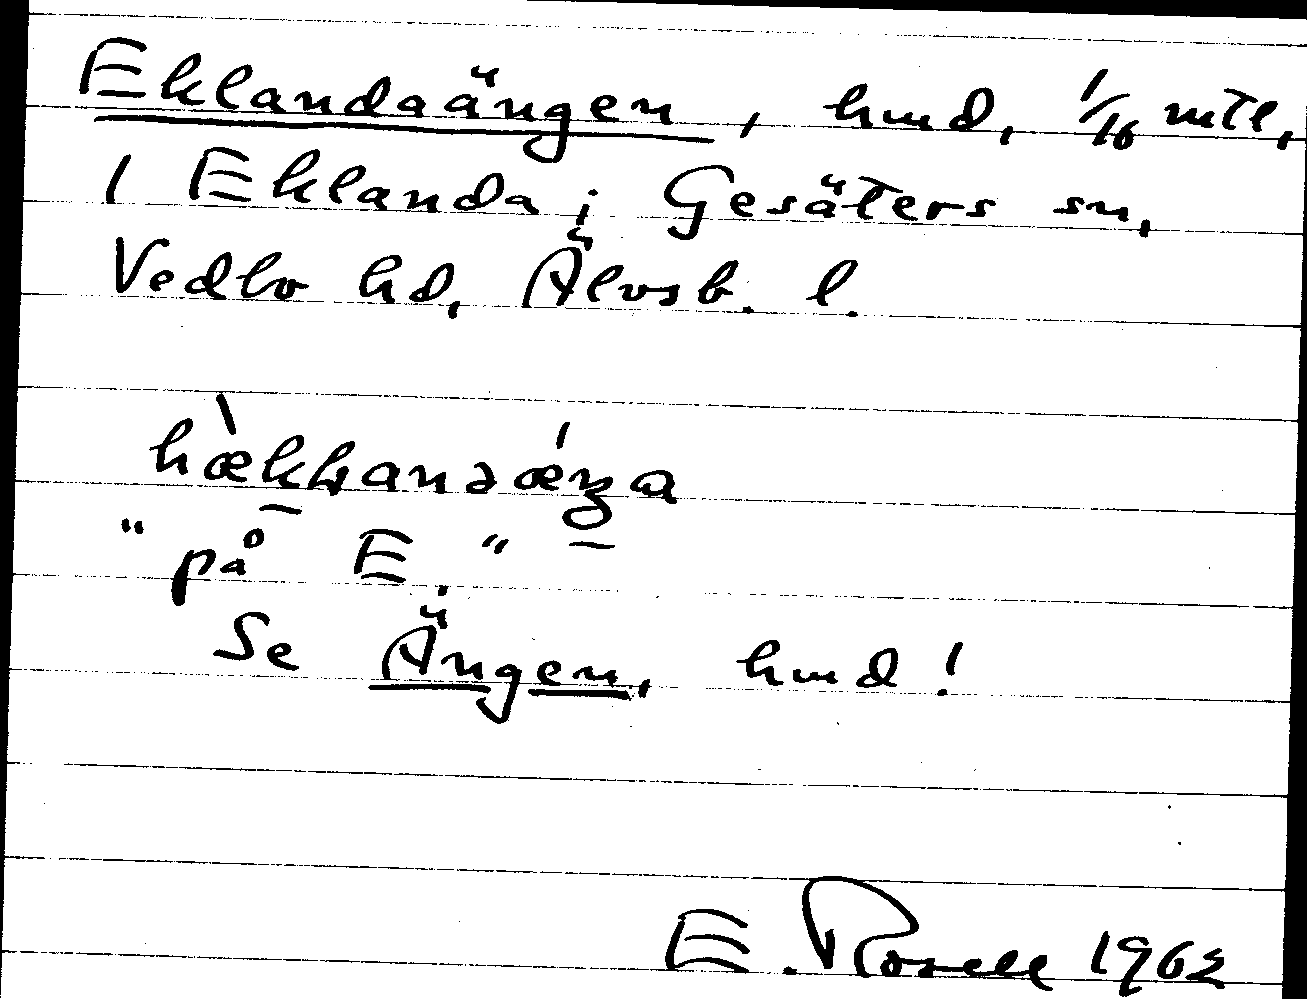 Eklandaängen, hmd, 1/16 mtl,
1 Eklanda i Gesäters sn,
Vedbo hd, Älvsb. l.
"på E."
Se Ängen, hmd!
E. Rosell 1962